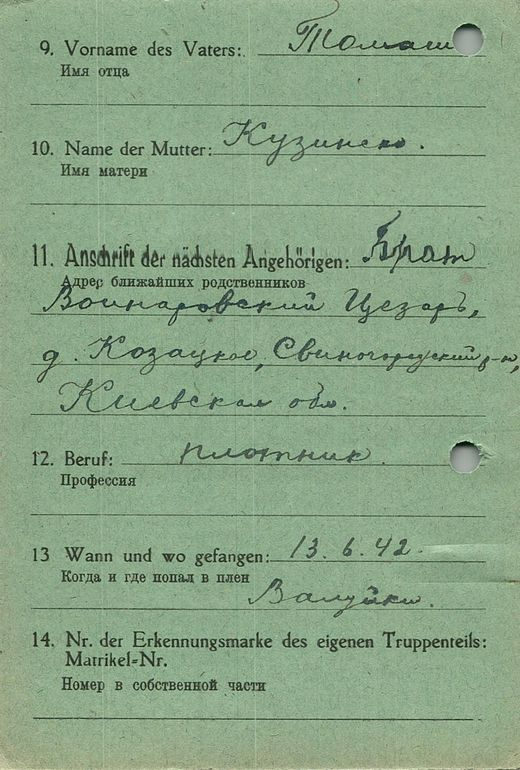 9. Vorname des Vaters: Томаш
Имя отца
10. Name der Mutter: Кузинско.
Имя матери
11. Anschrift der nächsten Angehörigen: Брат
Адрес ближайших родственников
Войнаровский Цезарь,
д. Козацкое, Свиногородский р-н,
Киевская обл.
12. Beruf: плотник.
Профессия
13 Wann und wo gefangen: 13.6.42.
Когда и где попал в плен
Валуйки.
14. Nr. der Erkennungsmarke des eigenen Truppenteils:
Matrikel-Nr.
Номер в собственной части